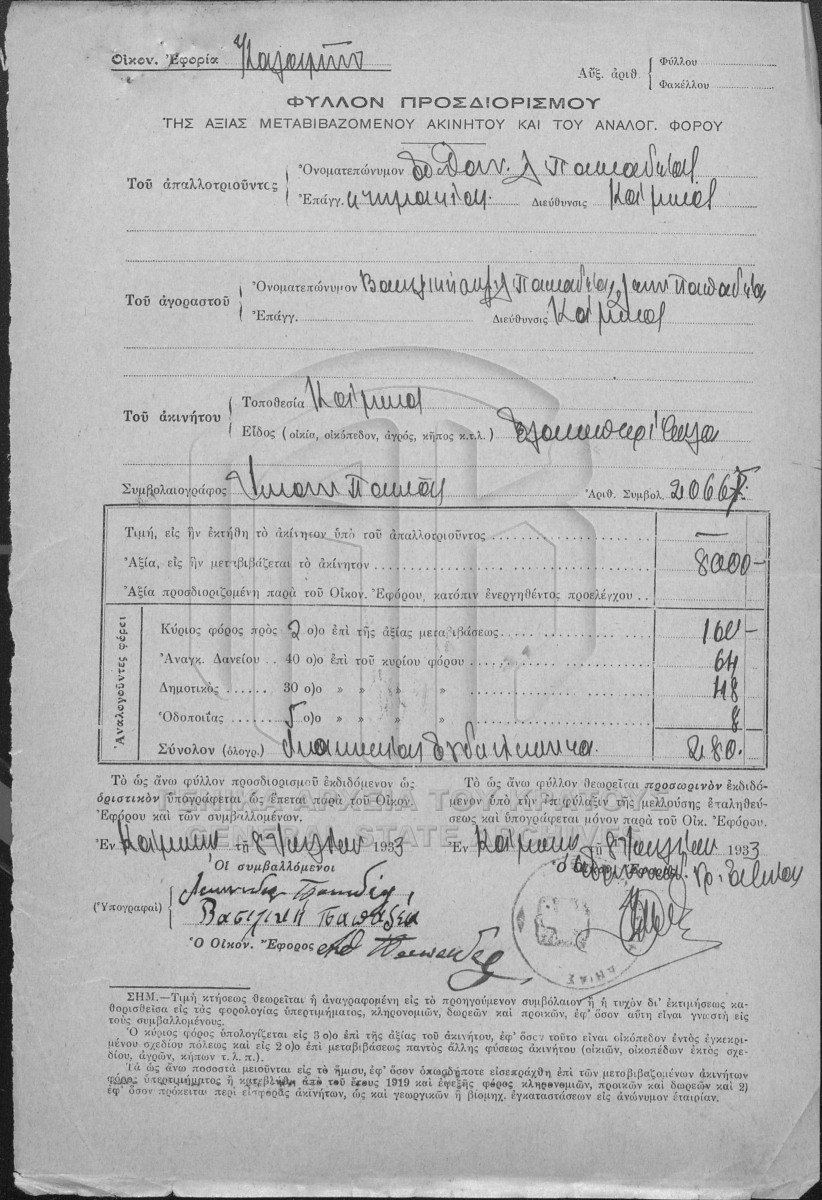 Οἰκον. Ἐφορία Καλαμῶν
Αὔξ. ἀριθ. { Φύλλου
Φακέλλου
ΦΥΛΛΟΝ ΠΡΟΣΔΙΟΡΙΣΜΟΥ
ΤΗΣ ΑΞΙΑΣ ΜΕΤΑΒΙΒΑΖΟΜΕΝΟΥ ΑΚΙΝΗΤΟΥ ΚΑΙ ΤΟΥ ΑΝΑΛΟΓ. ΦΟΡΟΥ
Τοῦ ἀπαλλοτριοῦντος
Ὀνοματεπώνυμον
Ἐπάγγ. κτηματίου Διεύθυνσις
Τοῦ ἀγοραστοῦ
Ὀνοματεπώνυμον
Ἐπάγγ. Διεύθυνσις
Τοῦ ἀκινήτου
Τοποθεσία
Εἶδος (οἰκία, οἰκόπεδον, ἀγρός, κῆπος κ.τ.λ.)
Συμβολαιογράφος Ἀριθ. Συμβολ. 2066
Τιμή, εἰς ἣν ἐκτήθη τὸ ἀκίνητον ὑπὸ τοῦ ἀπαλλοτριοῦντος —
Ἀξία, εἰς ἣν μεταβιβάζεται τὸ ἀκίνητον 8000—
Ἀξία προσδιοριζομένη παρὰ τοῦ Οἰκον. Ἐφόρου, κατόπιν ἐνεργηθέντος προελέγχου
Ἀναλογοῦντες φόροι
Κύριος φόρος πρὸς 2 ο)ο ἐπὶ τῆς ἀξίας μεταβιβάσεως 160—
Ἀναγκ. Δανείου 40 ο)ο ἐπὶ τοῦ κυρίου φόρου 64
Δημοτικὸς 30 ο)ο » » » » 48
Ὁδοποιΐας 5 ο)ο » » » » 8
Σύνολον (ὁλογρ.) Διακόσιαι ὀγδοήκοντα 280.
Τὸ ὡς ἄνω φύλλον προσδιορισμοῦ ἐκδιδόμενον ὡς
ὁριστικὸν ὑπογράφεται ὡς ἕπεται παρὰ τοῦ Οἰκον.
Ἐφόρου καὶ τῶν συμβαλλομένων.
Τὸ ὡς ἄνω φύλλον θεωρεῖται προσωρινὸν ἐκδιδό-
μενον ὑπὸ τὴν ἐπιφύλαξιν τῆς μελλούσης ἐπαληθεύ-
σεως καὶ ὑπογράφεται μόνον παρὰ τοῦ Οἰκ. Ἐφόρου.
ΓΕΝΙΚΑ ΑΡΧΕΙΑ ΤΟΥ ΚΡΑΤΟΥΣ
GENERAL STATE ARCHIVES
Ἐν τῇ 8 Ἰουλίου 1933
Ἐν τῇ 8 Ἰουλίου 1933
Οἱ συμβαλλόμενοι
(Ὑπογραφαὶ)
Βασιλικὴ
Ὁ Οἰκον. Ἔφορος
ΣΗΜ.—Τιμὴ κτήσεως θεωρεῖται ἡ ἀναγραφομένη εἰς τὸ προηγούμενον συμβόλαιον ἢ ἡ τυχὸν δι' ἐκτιμήσεως κα-
θορισθεῖσα εἰς τὰς φορολογίας ὑπερτιμήματος, κληρονομιῶν, δωρεῶν καὶ προικῶν, ἐφ' ὅσον αὕτη εἶναι γνωστὴ εἰς
τοὺς συμβαλλομένους.
Ὁ κύριος φόρος ὑπολογίζεται εἰς 3 ο)ο ἐπὶ τῆς ἀξίας τοῦ ἀκινήτου, ἐφ' ὅσον τοῦτο εἶναι οἰκόπεδον ἐντὸς ἐγκεκρι-
μένου σχεδίου πόλεως καὶ εἰς 2 ο)ο ἐπὶ μεταβιβάσεως παντὸς ἄλλης φύσεως ἀκινήτου (οἰκιῶν, οἰκοπέδων ἐκτὸς σχε-
δίου, ἀγρῶν, κήπων τ. λ. π.).
Τὰ ὡς ἄνω ποσοστὰ μειοῦνται εἰς τὸ ἥμισυ, ἐφ' ὅσον ὁπωσδήποτε εἰσεπράχθη ἐπὶ τῶν μεταβιβαζομένων ἀκινήτων
φόρος ὑπερτιμήματος ἢ κατεβλήθη ἀπὸ τοῦ ἔτους 1919 καὶ ἐφεξῆς φόρος κληρονομιῶν, προικῶν καὶ δωρεῶν καὶ 2)
ἐφ' ὅσον πρόκειται περὶ εἰσφορᾶς ἀκινήτων, ὡς καὶ γεωργικῶν ἢ βιομηχ. ἐγκαταστάσεων εἰς ἀνώνυμον ἑταιρίαν.